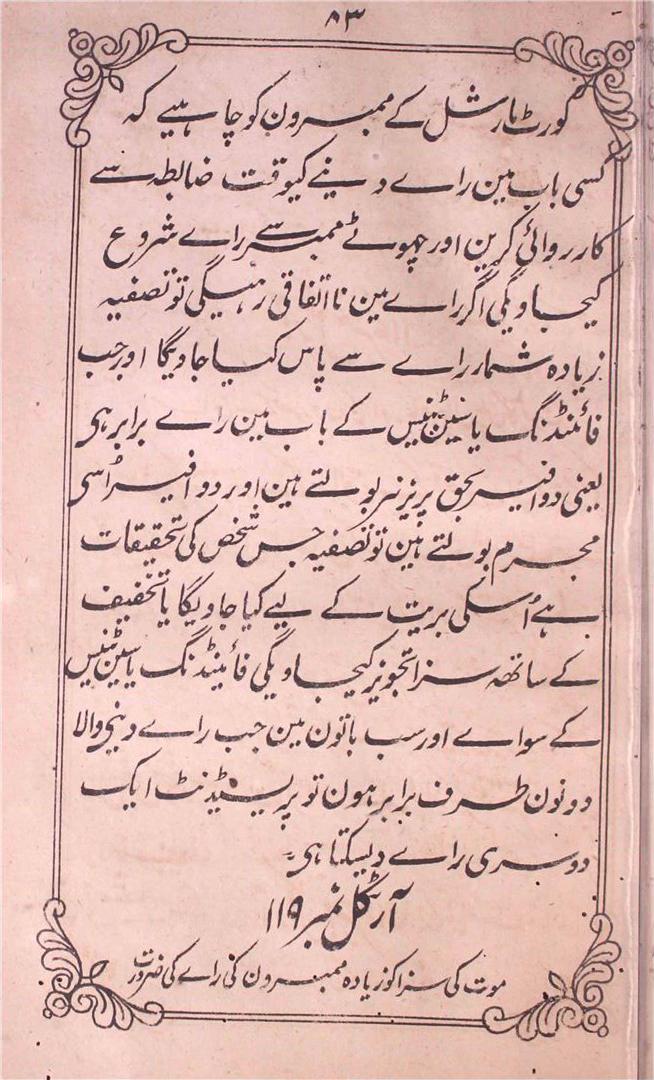 ۸۳
کورٹ مارشل کے ممبرون کو چاہیے کہ
کسی باب مین راے دینے کیوقت ضابطہ سے
کارروائی کرین اور چہوٹے ممبر سے راے شروع
کیجاویگی اگر راے مین نااتفاقی رہیگی تو تصفیہ
زیادہ شمار راے سے پاس کیا جاویگا اور جب
فائنڈنگ یا سینٹنیس کے باب مین راے برابر ہی
یعنی دو افیسر بحق پریزنر بولتے ہین اور دو افیسر اُسی
مجرم بولتے ہین تو تصفیہ جس شخص کی تحقیقات
ہے اُسکی بریت کے لیے کیا جاویگا یا تخفیف
کے ساتھہ سزا تجویز کیجاویگی فائینڈنگ یا سینٹنیس
کے سواے اور سب باتون مین جب راے دینیوالا
دونون طرف برابر ہون تو پریسیڈنٹ ایک
دوسری راے دیسکتا ہی۔
آرٹکل نمبر ۱۱۹
موت کی سزا کو زیادہ ممبرون کی راے کی ضرورت